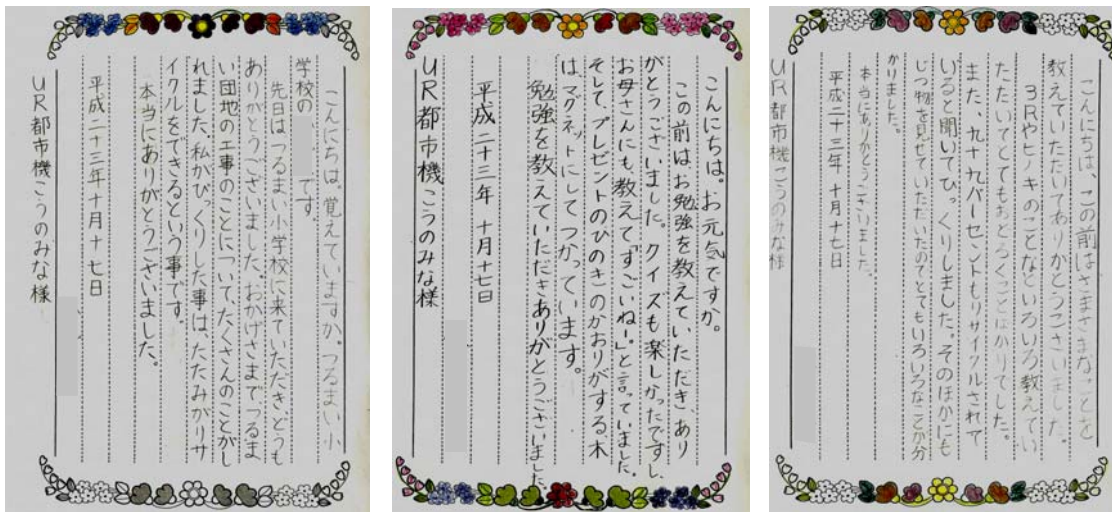 こんにちは。覚えていますか。つるまい小
学校の　　　です。
先日は、つるまい小学校に来ていただき、どうも
ありがとうございました。おかげさまでつるま
い団地の工事のことについて、たくさんのことがし
れました。私がびっくりした事は、たたみがリサ
イクルをできるという事です。
本当にありがとうございました。
平成二十三年十月十七日
UR都市機こうのみな様
こんにちは。お元気ですか。
この前は、お勉強を教えていただき、あり
がとうございました。クイズも楽しかったですし、
お母さんにも、教えて「すごいね！」と言っていました。
そして、プレゼントのひのきのかおりがする木
は、マグネットにしてつかっています。
勉強を教えていただきありがとうございました。
平成二十三年 十月十七日
UR都市機こうのみな様
こんにちは、この前はさまざまなことを
教えていただいてありがとうございました。
3Rやヒノキのことなどいろいろ教えてい
ただいてとてもおどろくことばかりでした。
また、九十九パーセントもリサイクルされて
いると聞いてびっくりしました。そのほかにも
じつ物を見せていただいたのでとてもいろいろなことが分
かりました。
本当にありがとうございました。
平成二十三年 十月十七日
UR都市機こうのみな様